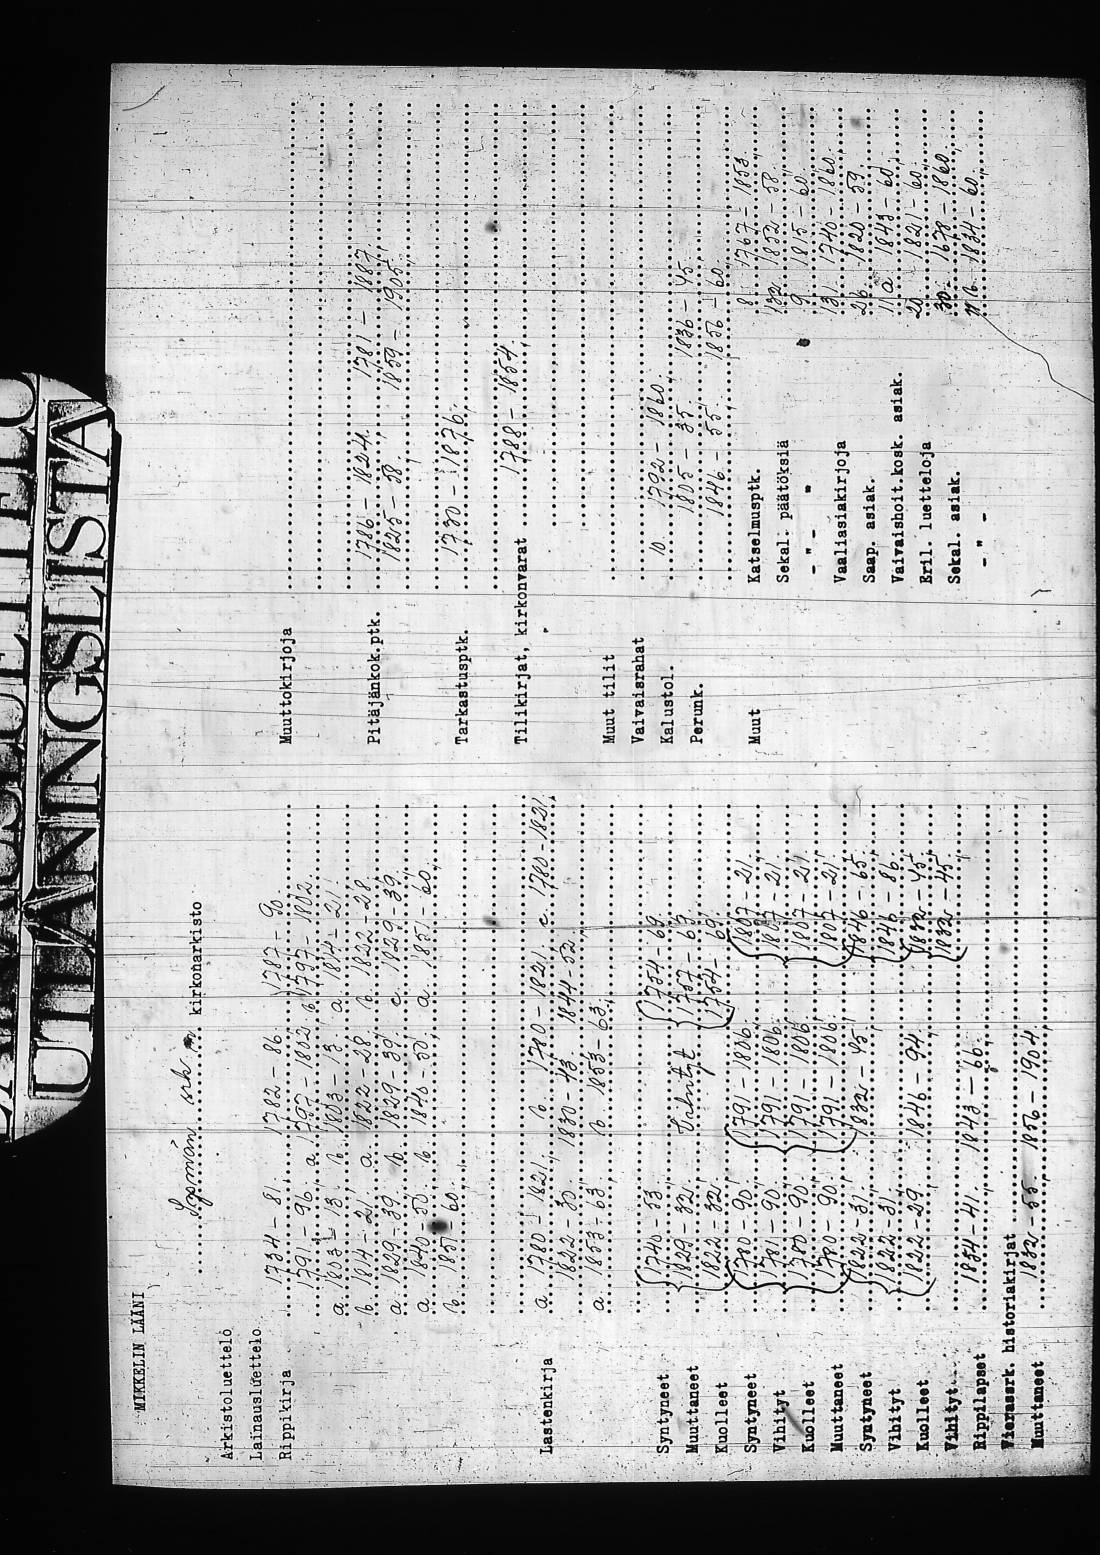 UTLÅNINGSLISTA
MIKKELIN LÄÄNI
Sysmän srk:n kirkonarkisto
Arkistoluettelo
Lainausluettelo
Rippikirja 1734 - 81, 1782 - 86, 1787 - 90,
1791 - 96, a 1797 - 1802 b 1797 - 1802,
a 1803 - 13, b 1803 - 13, a 1814 - 21,
b 1814 - 21, a 1822 - 28, b 1822 - 28,
a 1829 - 39, b 1829 - 39, c 1829 - 39,
a 1840 - 50, b 1840 - 50, a 1851 - 60,
b 1851 - 60,
Lastenkirja a 1780 - 1821, b 1780 - 1821, c 1780 - 1821,
1822 - 30, 1830 - 43, 1844 - 52,
a 1853 - 63, b 1853 - 63,
Syntyneet 1740 - 33, 1754 - 69
Muuttaneet 1829 - 32, Vihityt 1757 - 69
Kuolleet 1822 - 32, 1754 - 69,
Syntyneet 1780 - 90, 1791 - 1806, 1807 - 21,
Vihityt 1781 - 90, 1791 - 1806, 1807 - 21,
Kuolleet 1780 - 90, 1791 - 1806, 1807 - 21,
Muuttaneet 1780 - 90, 1791 - 1806, 1807 - 21,
Syntyneet 1822 - 31, 1832 - 45, 1846 - 65,
Vihityt 1822 - 31, 1846 - 86,
Kuolleet 1822 - 29, 1846 - 94, 1832 - 45,
Vihityt 1832 - 45,
Rippilapset 1834 - 41, 1843 - 66,
Vierassrk. historiakirjat
Muuttaneet 1832 - 55, 1856 - 1904,
Muuttokirjoja
Pitäjänkok.ptk. 1786 - 1824, 1781 - 1887,
1825 - 58, 1859 - 1905,
Tarkastusptk. 1730 - 1876,
Tilikirjat, kirkonvarat 1788 - 1854,
Muut tilit
Vaivaisrahat
Kalustol. 10 1792 - 1860,
Perunk. 1805 - 35, 1836 - 45,
1846 - 55, 1856 - 60,
Muut Katselmusptk. 8 1767 - 1853,
Sekal. päätöksiä 132 1852 - 58,
- " - " 9 1815 - 60,
Vaaliasiakirjoja 131 1740 - 1860,
Saap. asiak. 26 1820 - 59,
Vaivaishoit.kosk. asiak. 11 a 1843 - 60,
Eril. luetteloja 20 1821 - 60,
Sekal. asiak. 30 1678 - 1860,
- " - 11 b 1834 - 60,